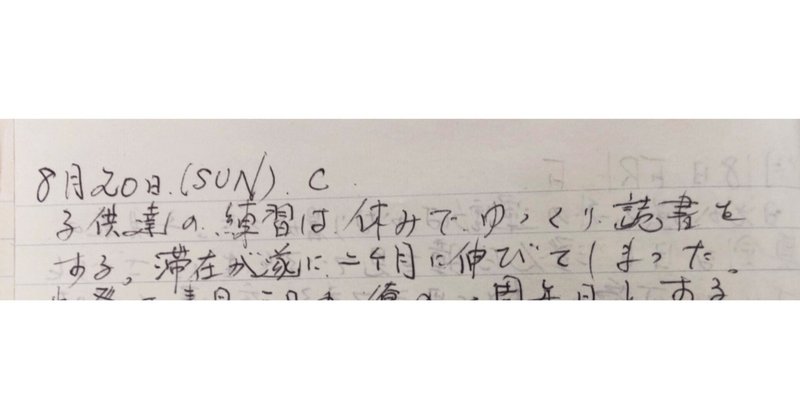 8月20日.(SUN). C.
子供達の練習は休みでゆっくり読書を
する。滞在が遂に二ケ月に伸びてしまった。